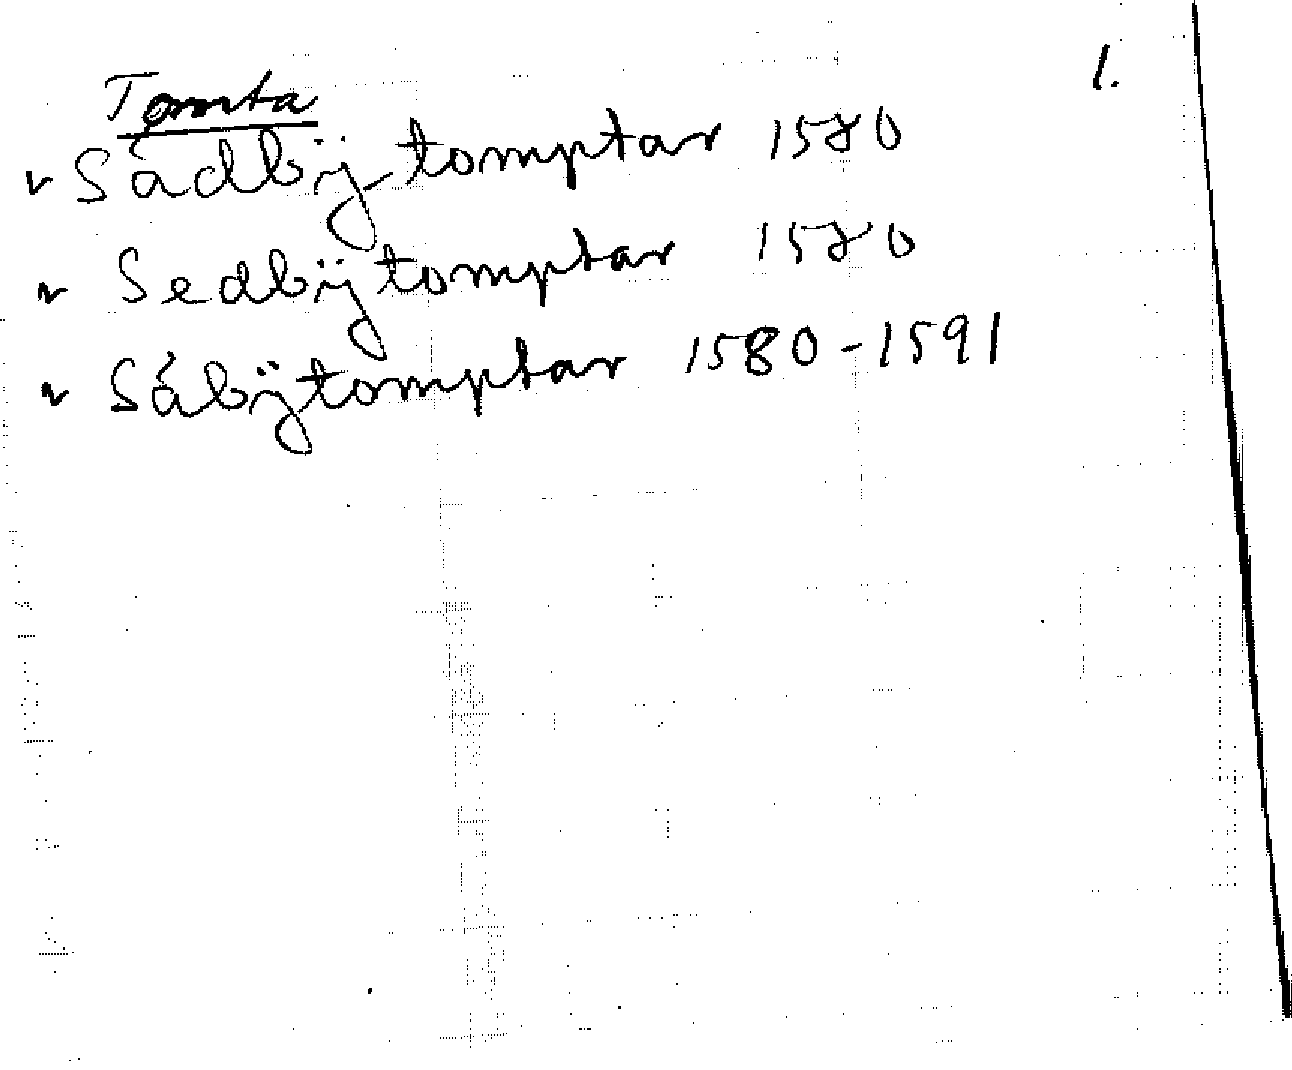 Tomta 1.
v Sådbÿ-tomptar 1580
v Sedbÿtomptar 1580
v Såbÿtomptar 1580-1591